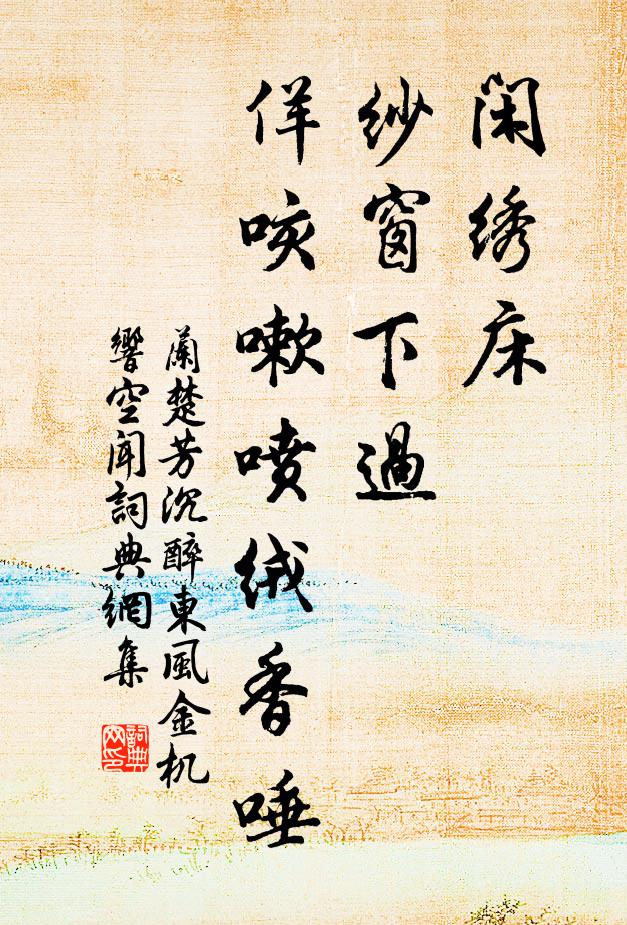 闲绣床
纱窗下過
佯咳嗽喷绒香唾
蘭楚芳沉醉東風金机
響空聞詞典網集
詞典
网印